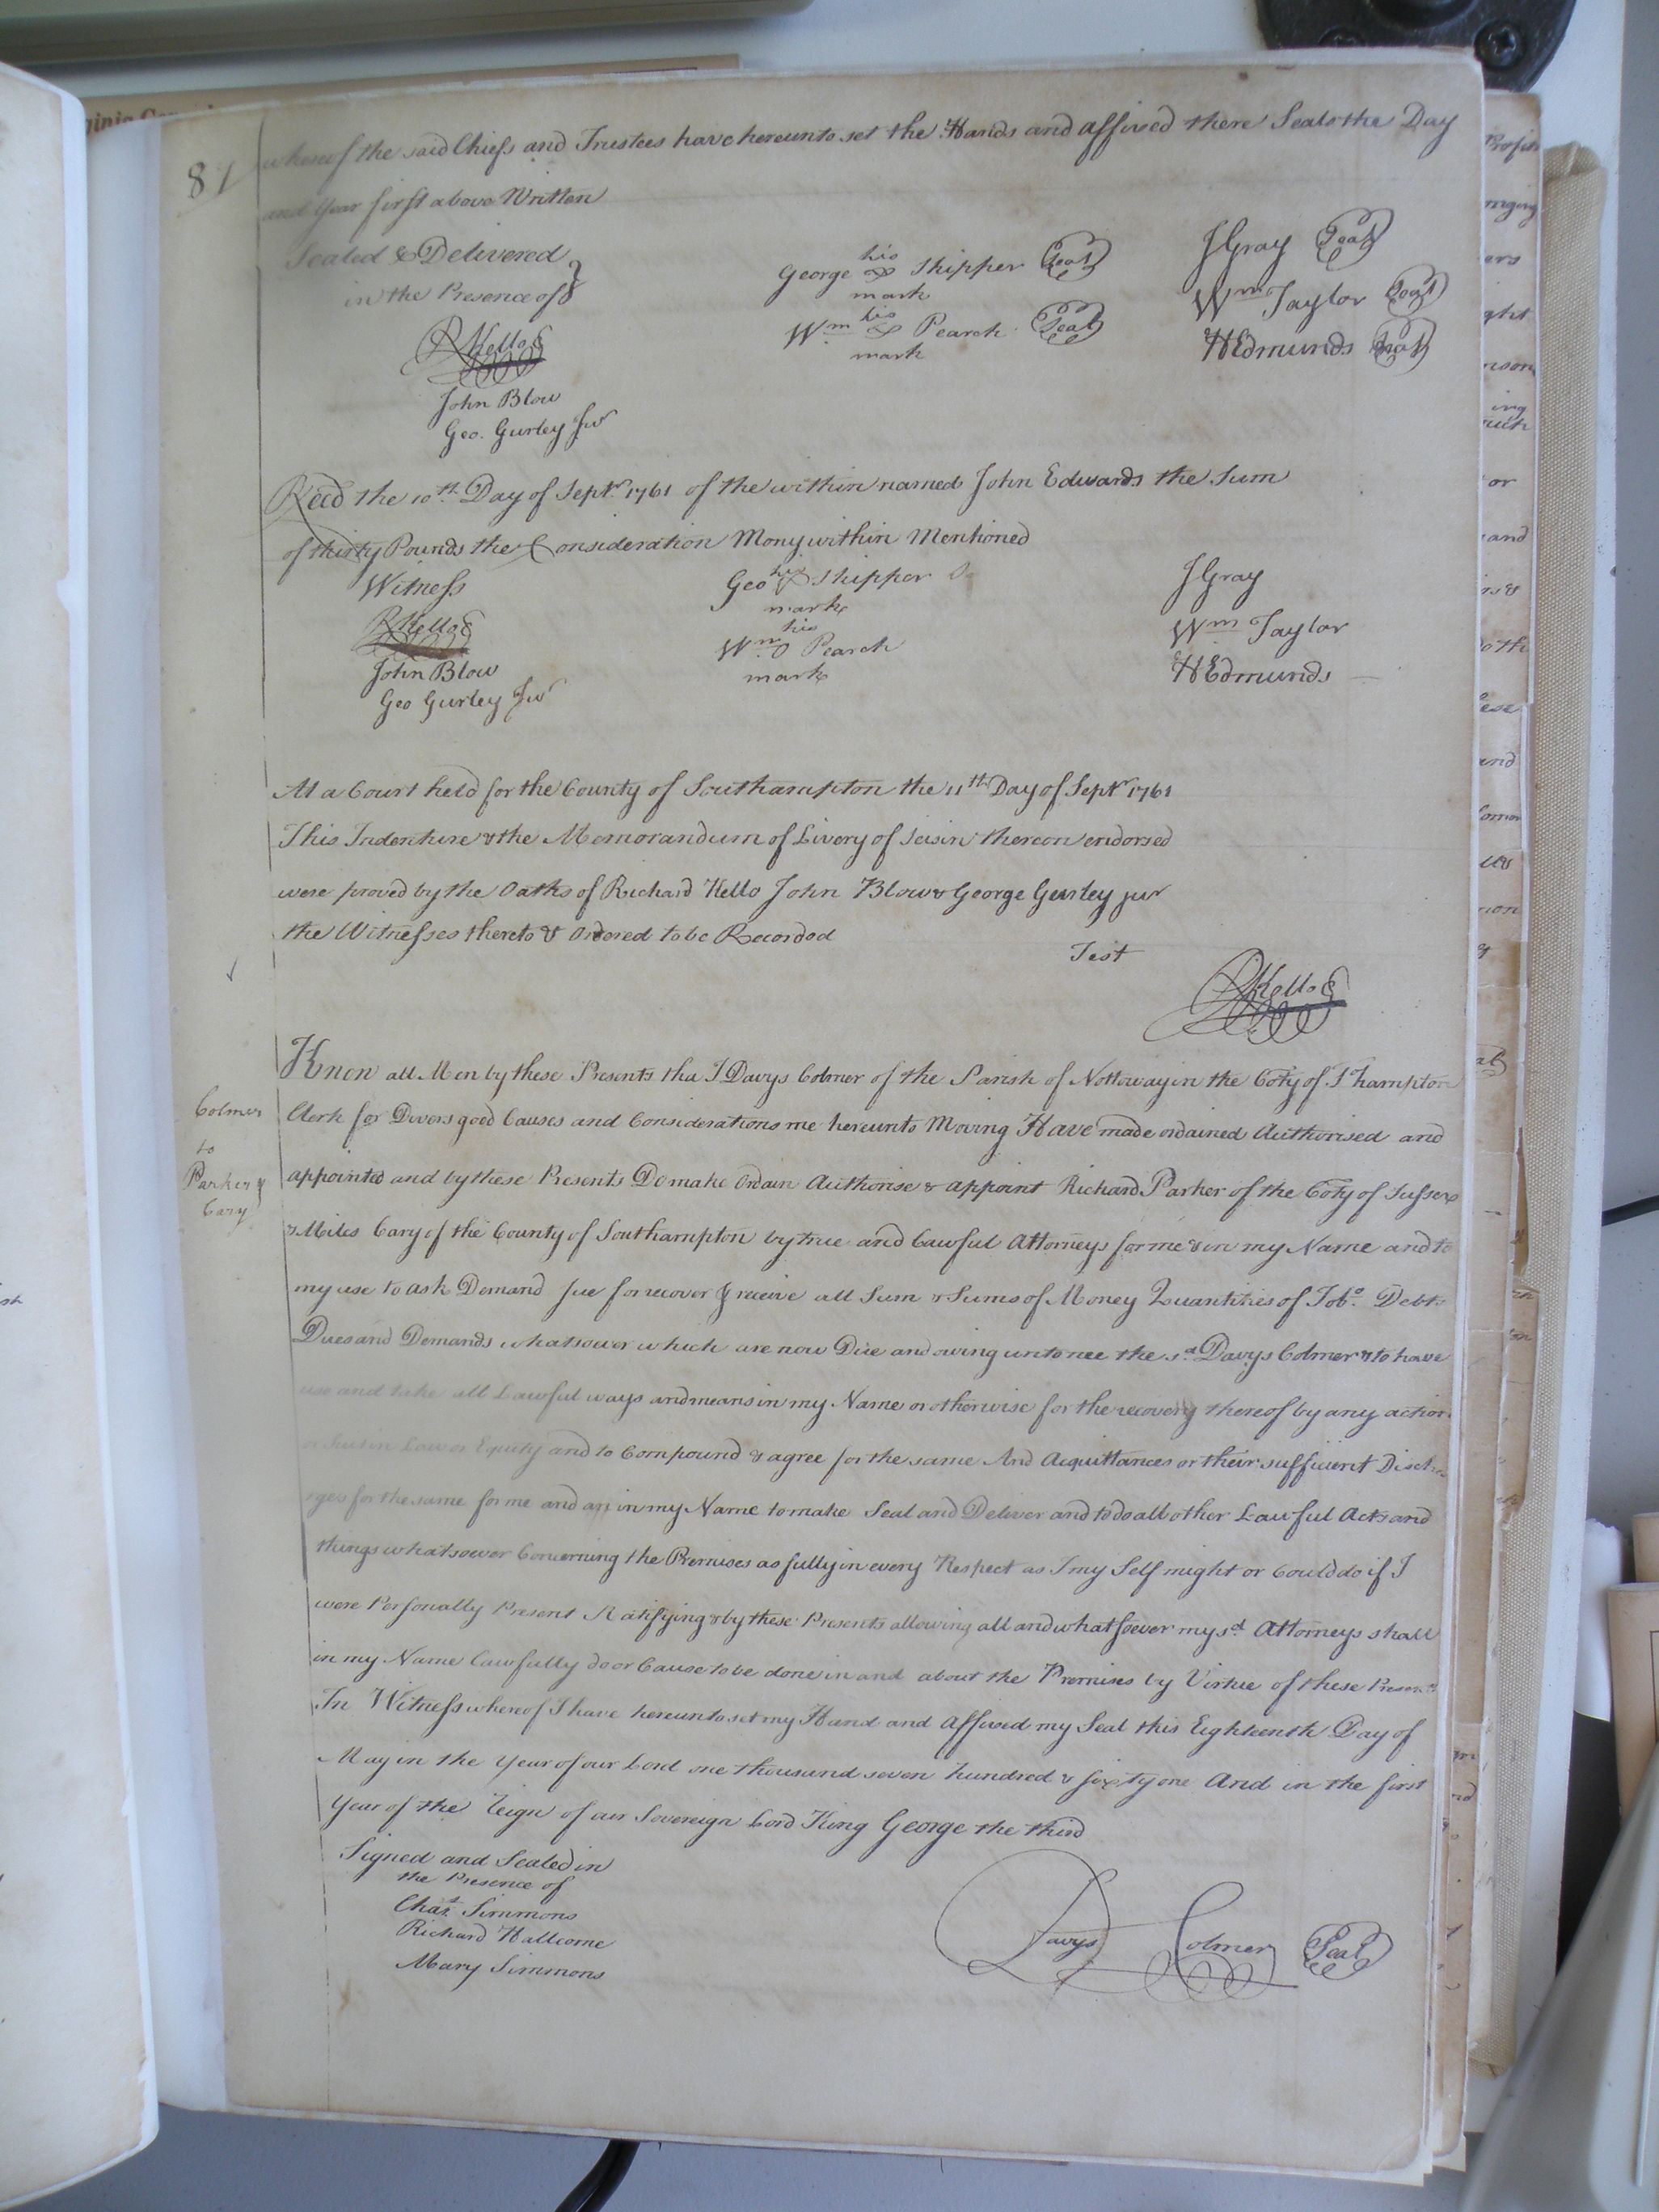 81
whereof the said Chiefs and Trustees have hereunto set the Hands and affixed there Seals the Day
and Year first above Written
Sealed & Delivered
in the Presence of
George his Shipper Seal
mark
Wm his Pearch Seal
mark
JGray Seal
Wm Taylor Seal
HEdmunds Seal
RKello
John Blow
Geo. Gurley Jur
Recd the 10th Day of Septr 1761 of the within named John Edwards the Sum
of thirty Pounds the Consideration Mony within Mentioned
Witness
RKello
John Blow
Geo Gurley Jur
Geo his Shipper
mark
his
Wm Pearch
mark
JGray
Wm Taylor
HEdmunds
At a Court held for the County of Southampton the 11th Day of Septr 1761
This Indenture & the Memorandum of Livery of Seisin thereon endorsed
were proved by the Oaths of Richard Kello John Blow & George Gurley jur
the Witnesses thereto & Ordered to be Recorded
Test
RKello
Colmer
to
Parker &
Cary
Know all Men by these Presents tha I Davys Colmer of the Parish of Nottoway in the Coty of S hampton
Clerk for Divers good Causes and Considerations me hereunto Moving Have made ordained Authorised and
appointed and by these Presents Do make Ordain Authorise & appoint Richard Parker of the Coty of Sussex
& Miles Cary of the County of Southampton by true and Lawful Attorneys for me & in my Name and to
my use to ask Demand Sue for recover & receive all Sum & Sums of Money Quantities of Tobo. Debts
Dues and Demands whatsoever which are now Due and owing unto mee the sd Davys Colmer & to have
use and take all Lawful ways and means in my Name or otherwise for the recovery thereof by any action
or Suit in Law or Equity and to Compound & agree for the same And Acquittances or their sufficient Discha
rges for the same for me and in my Name to make Seal and Deliver and to do all other Lawful Acts and
things whatsoever Concerning the Premises as fully in every Respect as I my Self might or could do if I
were Personally Present Ratifying & by these Presents allowing all and whatsoever my sd Attorneys shall
in my Name lawfully do or Cause to be done in and about the Premises by Virtue of these Presents
In Witness whereof I have hereunto set my Hand and Affixed my Seal this Eighteenth Day of
May in the Year of our Lord one thousand seven hundred & sixty one And in the first
Year of the Reign of our Sovereign Lord King George the third
Signed and Sealed in
the Presence of
Chas. Simmons
Richard Hallcome
Mary Simmons
Davys Colmer Seal